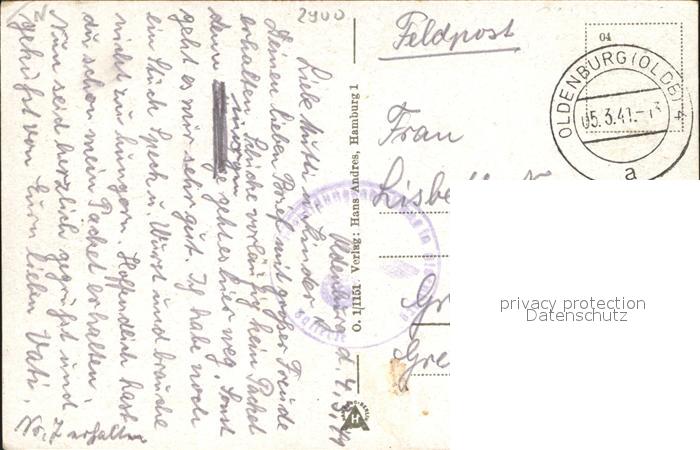 2900
Feldpost
04
OLDENBURG (OLDB) 4
05.3.41.-13
a
Frau
Lisbeth
Oldenburg d. 4.3.41
Liebe Mutti u. Kinder
Deinen lieben Brief mit großer Freude
erhalten. Schicke vorläufig kein Packet
denn morgen geht es hier weg. Sonst
geht es mir sehr gut. Ich habe noch
ein Stück Speck u. Wurst und brauche
nicht zu hungern. Hoffendlich hast
du schon mein Packet erhalten.
Nun seid herzlich gegrüßt und
geküßt von Euern lieben Vati.
No. 7 erhalten
O. 1/1151. Verlag: Hans Andres, Hamburg 1
privacy protection
Datenschutz